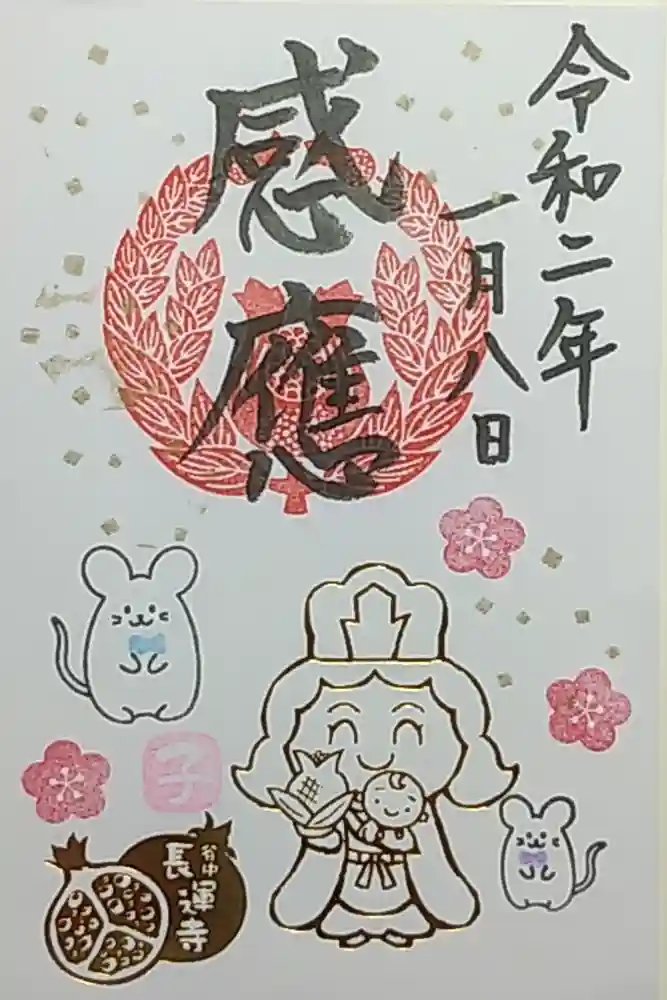 令和二年
一月八日
感應
子
谷中
長運寺